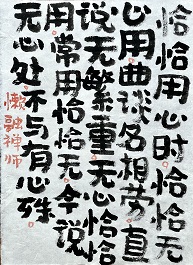 恰恰用心时恰恰无
心用曲谈名相劳直
说无繁重无心恰恰
用常用恰恰无今说
无心处不与有心殊
懒融禅师